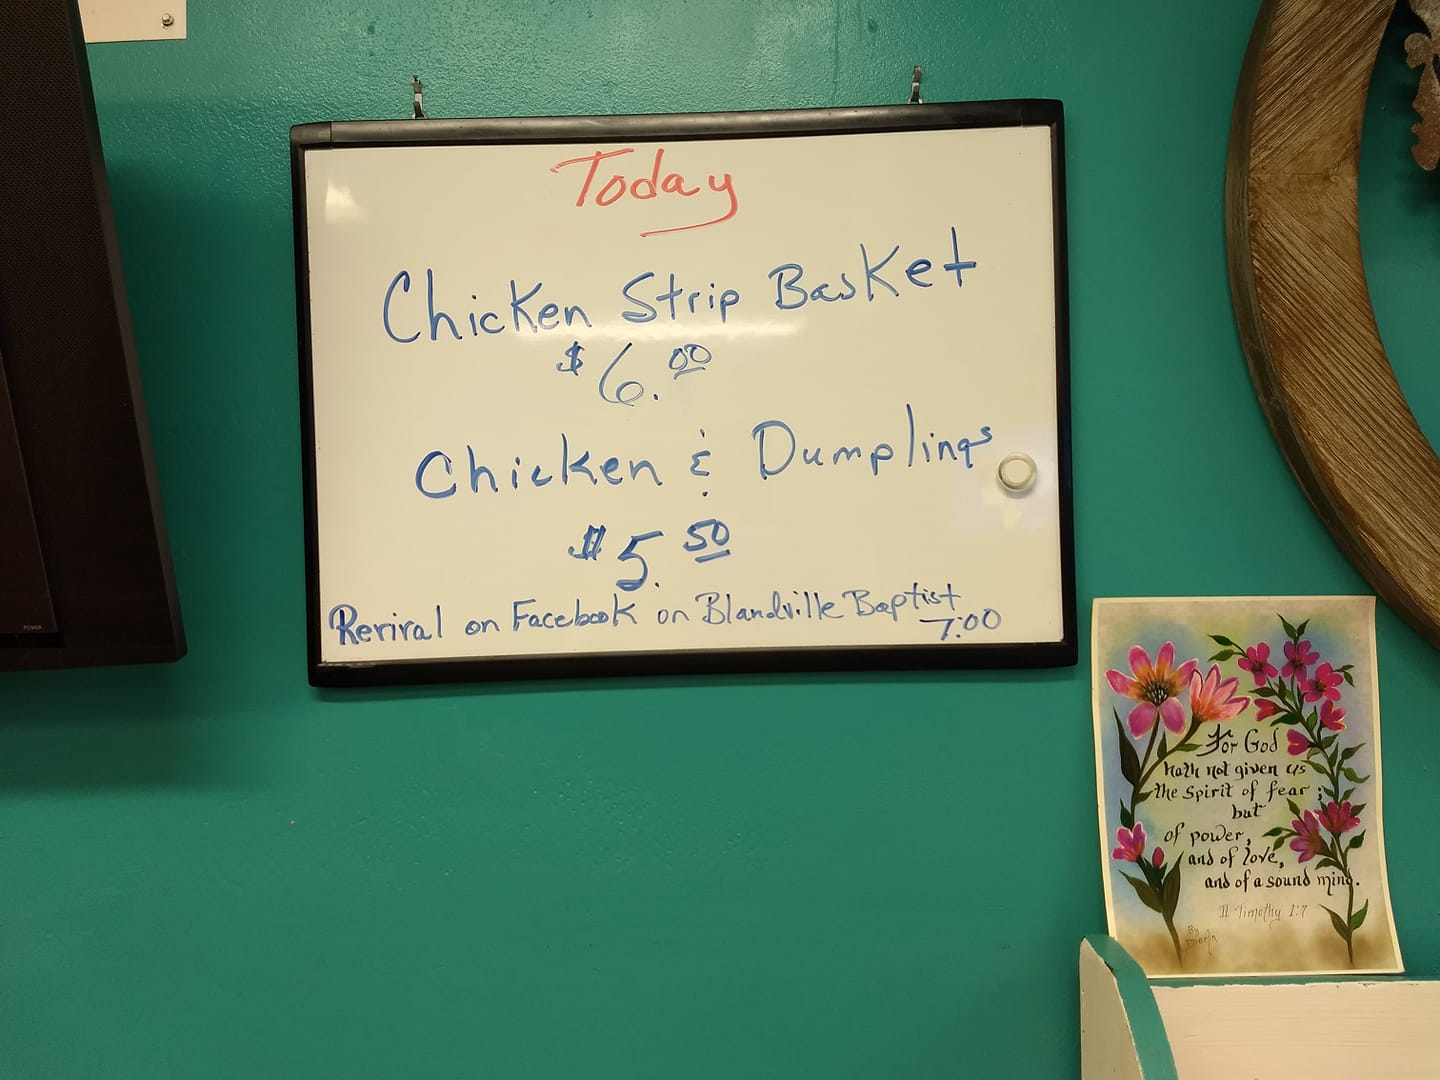 Today
Chicken Strip Basket
$6.00
Chicken & Dumplings
$5.50
Revival on Facebook on Blandville Baptist
7:00
For God
hath not given us
the Spirit of fear;
but
of power,
and of love,
and of a sound mind.
II Timothy 1:7
By
POWER